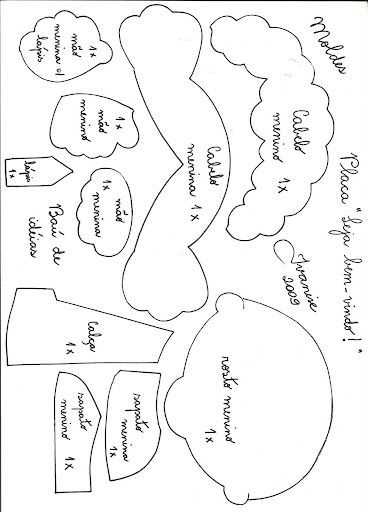 Moldes
Placa "Seja bem-vindo!"
Cabelo
menino 1x
Ivanise
2009
Cabelo
menina 1x
1x
mão
menina c/
lápis
1x
mão
menino
lápis
1x
1x mão
menina
Baú de
idéias
Calça
1x
rosto menino
1x
sapato
menina
1x
sapato
menino 1x